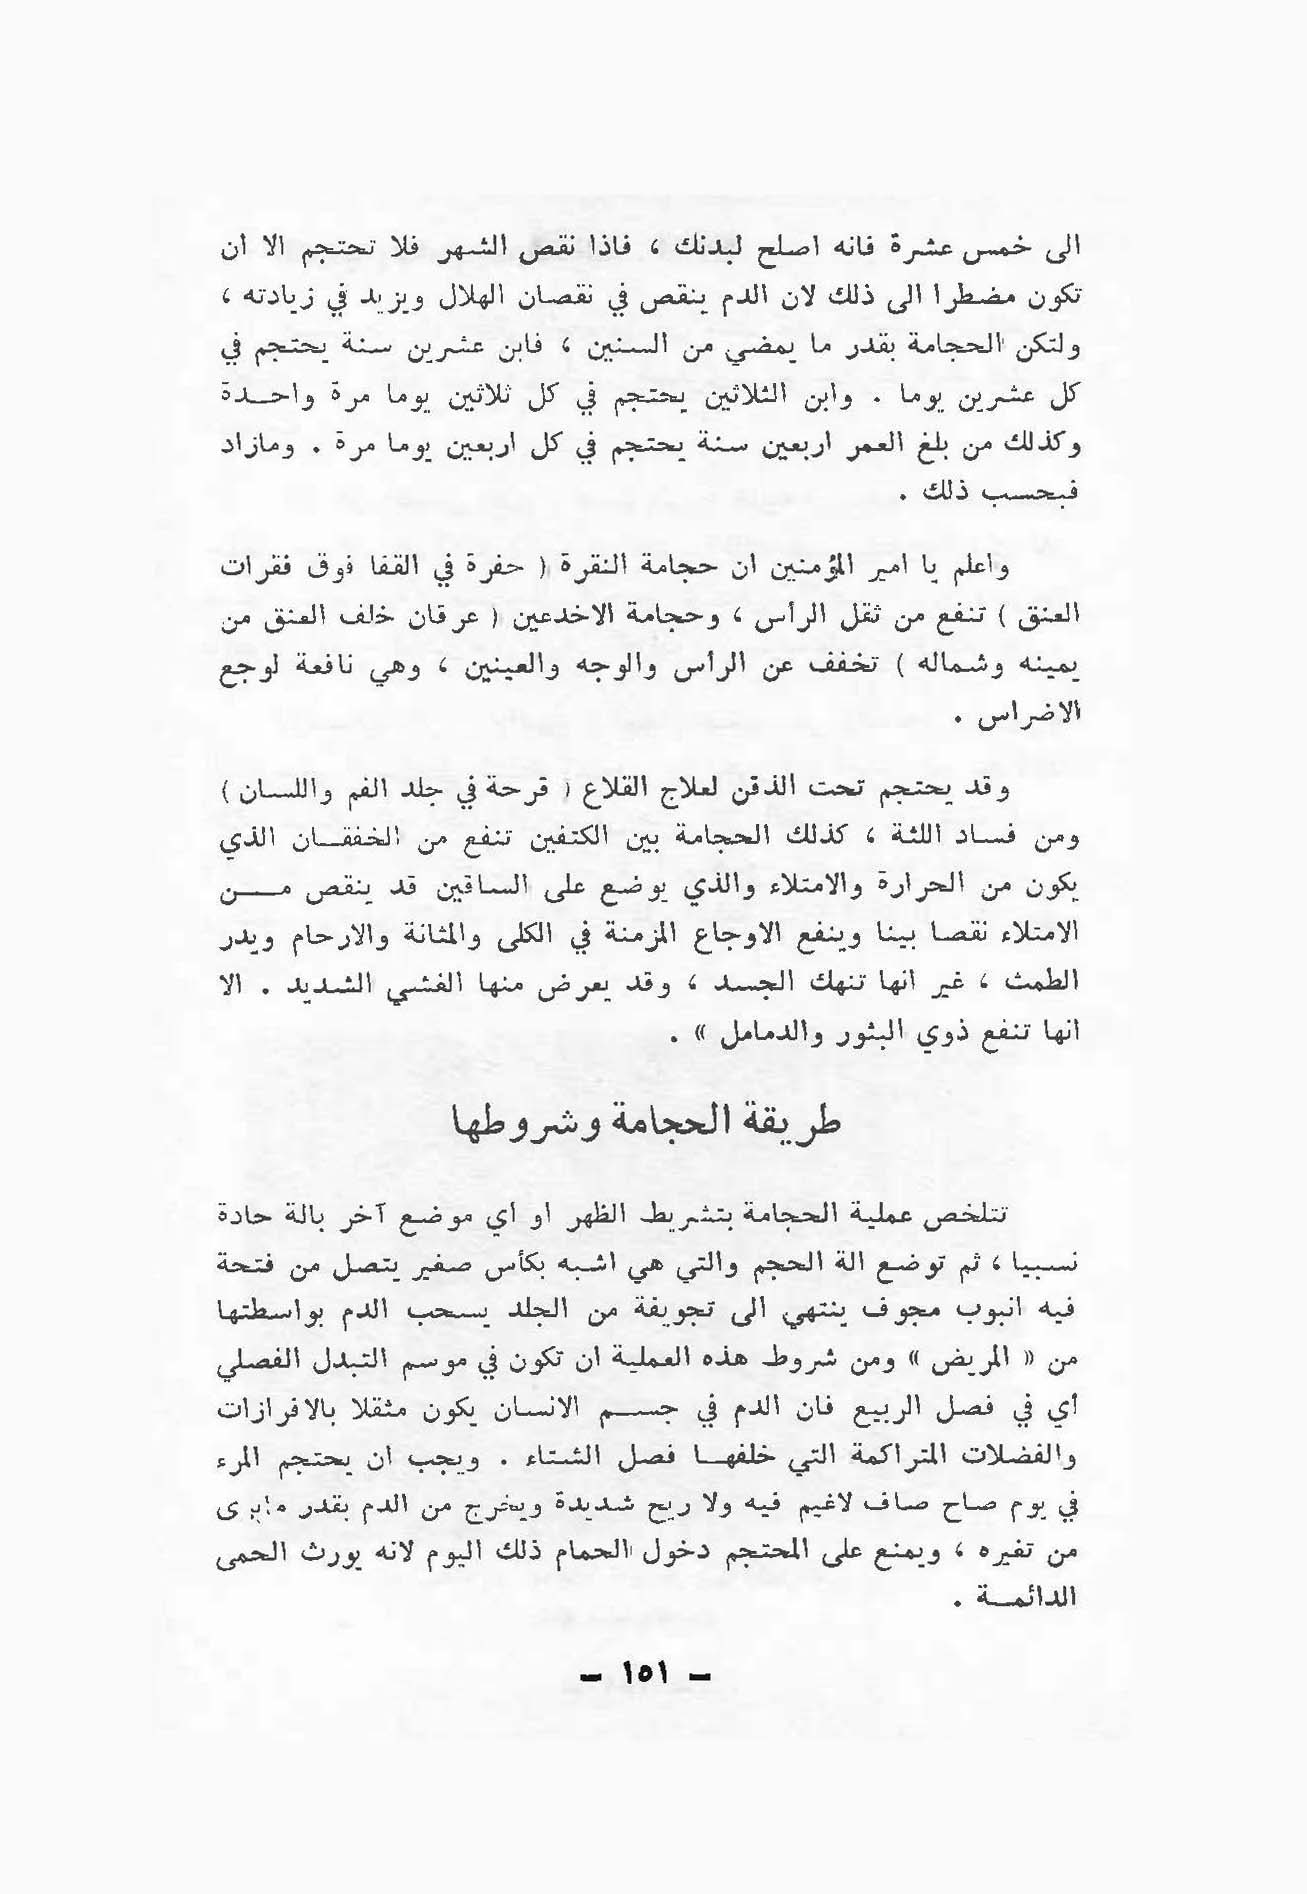 الى خمس عشرة فانه اصلح لبدنك ، فاذا نقص الشهر فلا تحتجم الا ان
تكون مضطرا الى ذلك لان الدم ينقص في نقصان الهلال ويزيد في زيادته ،
ولتكن الحجامة بقدر ما يمضي من السنين ، فابن عشرين سنة يحتجم في
كل عشرين يوما . وابن الثلاثين يحتجم في كل ثلاثين يوما مرة واحــدة
وكذلك من بلغ العمر اربعين سنة يحتجم في كل اربعين يوما مرة . ومازاد
فبحسب ذلك .
واعلم يا امير المؤمنين ان حجامة النقرة ( حفرة في القفا فوق فقرات
العنق ) تنفع من ثقل الرأس ، وحجامة الاخدعين ( عرقان خلف العنق من
يمينه وشماله ) تخفف عن الرأس والوجه والعينين ، وهي نافعة لوجع
الاضراس .
وقد يحتجم تحت الذقن لعلاج القلاع ( قرحة في جلد الفم واللسان )
ومن فساد اللثة ، كذلك الحجامة بين الكتفين تنفع من الخفقــان الذي
يكون من الحرارة والامتلاء والذي يوضع على الساقين قد ينقص مــن
الامتلاء نقصا بينا وينفع الاوجاع المزمنة في الكلى والمثانة والارحام ويدر
الطمث ، غير انها تنهك الجسد ، وقد يعرض منها الغشي الشديد . الا
انها تنفع ذوي البثور والدمامل » .
طريقة الحجامة وشروطها
تتلخص عملية الحجامة بتشريط الظهر او اي موضع آخر بالة حادة
نسبيا ، ثم توضع الة الحجم والتي هي اشبه بكأس صغير يتصل من فتحة
فيه انبوب مجوف ينتهي الى تجويفة من الجلد يسحب الدم بواسطتها
من « المريض » ومن شروط هذه العملية ان تكون في موسم التبدل الفصلي
أي في فصل الربيع فان الدم في جســم الانسان يكون مثقلا بالافرازات
والفضلات المتراكمة التي خلفهــا فصل الشتاء . ويجب ان يحتجم المرء
في يوم صاح صاف لاغيم فيه ولا ريح شديدة ويخرج من الدم بقدر مايرى
من تغيره ، ويمنع على المحتجم دخول الحمام ذلك اليوم لانه يورث الحمى
الدائمــة .
– ١٥١ –